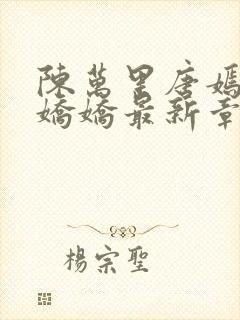 陳萬里唐嫣
嬌嬌最新章
楊宗聖